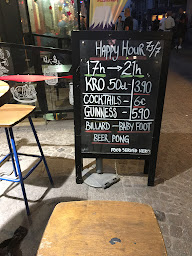 Happy Hour 7j/7
17h — 21h
KRO 50cl - 3.90
COCKTAILS — 6€
GUINNESS — 5.90
BILLARD — BABY FOOT
BEER PONG
FOOD SERVED HERE!